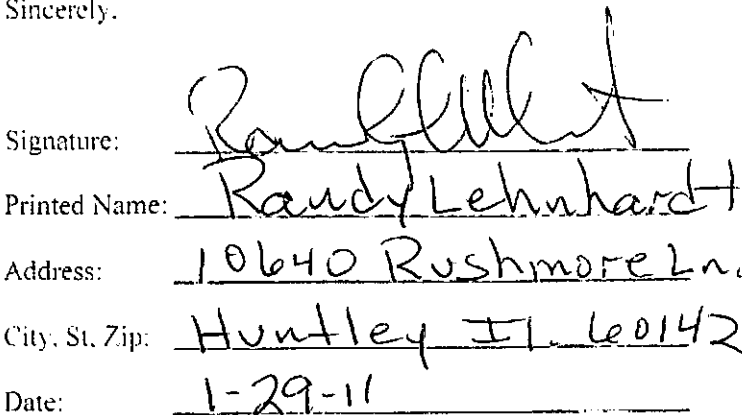 Sincerely,
Signature:
Printed Name: Randy Lehnhardt
Address: 10640 Rushmore Ln.
City, St, Zip: Huntley Il. 60142
Date: 1-29-11